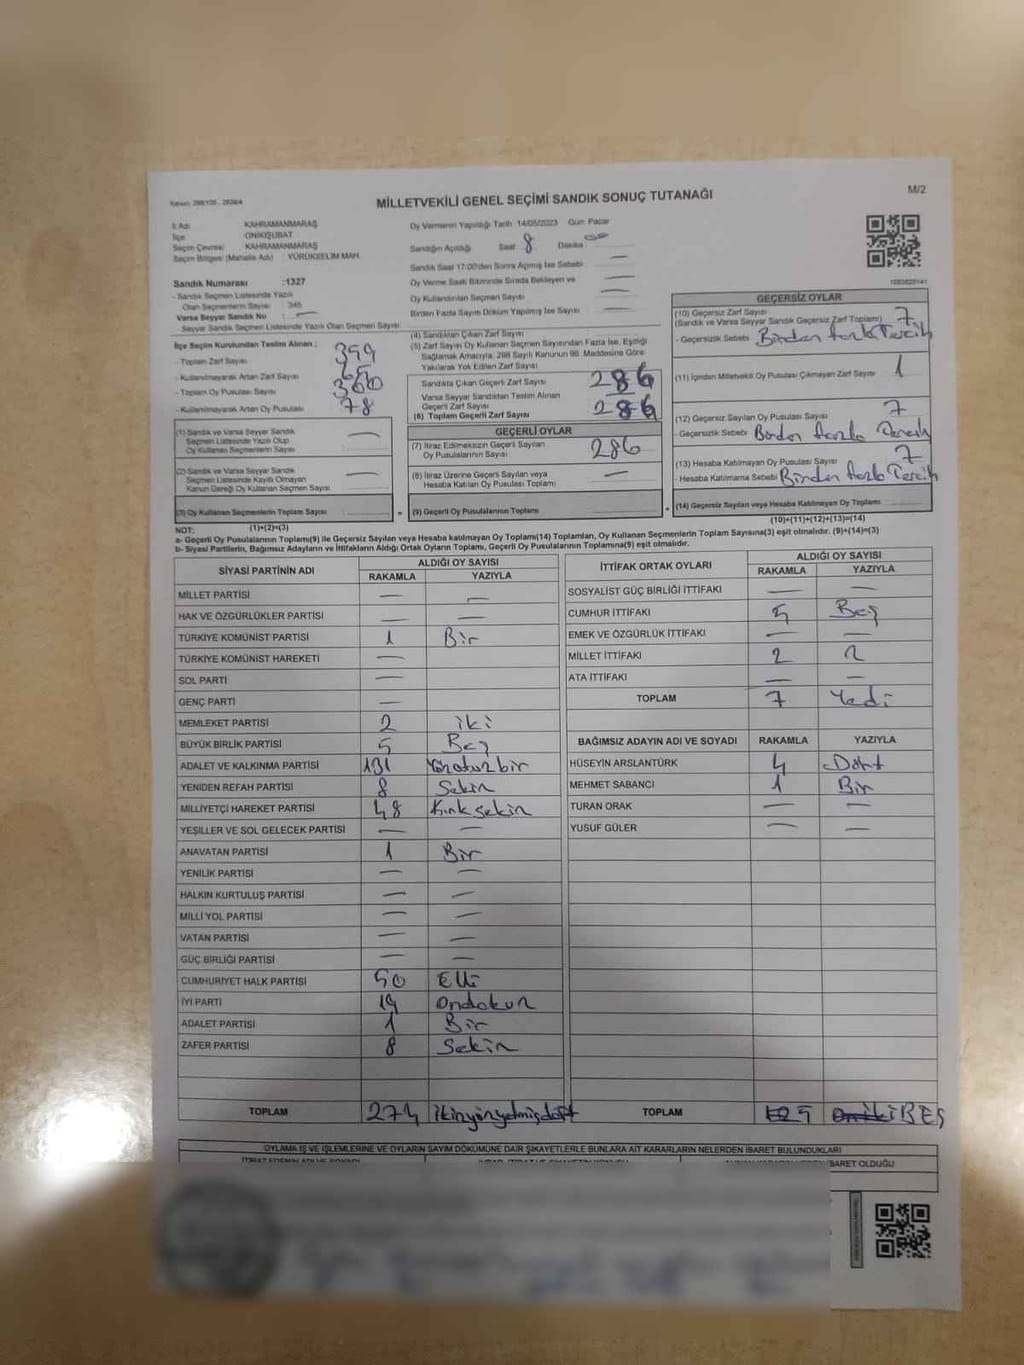 Kanun: 298/105 - 2839/4
MİLLETVEKİLİ GENEL SEÇİMİ SANDIK SONUÇ TUTANAĞI
M/2
İl Adı KAHRAMANMARAŞ
İlçe ONİKİŞUBAT
Seçim Çevresi : KAHRAMANMARAŞ
Seçim Bölgesi (Mahalle Adı) : YÜRÜKSELİM MAH.
Oy Vermenin Yapıldığı Tarih 14/05/2023 Gün Pazar
Sandığın Açıldığı Saat 8 Dakika 00
Sandık Saat 17:00'den Sonra Açılmış İse Sebebi —
Oy Verme Saati Bitiminde Sırada Bekleyen ve —
Oy Kullandırılan Seçmen Sayısı —
Birden Fazla Sayım Döküm Yapılmış İse Sayısı —
Sandık Numarası :1327
- Sandık Seçmen Listesinde Yazılı
Olan Seçmenlerin Sayısı : 345
Varsa Seyyar Sandık No : —
- Seyyar Sandık Seçmen Listesinde Yazılı Olan Seçmen Sayısı
İlçe Seçim Kurulundan Teslim Alınan ;
- Toplam Zarf Sayısı
- Kullanılmayarak Artan Zarf Sayısı
- Toplam Oy Pusulası Sayısı 360
- Kullanılmayarak Artan Oy Pusulası 78
(1) Sandık ve Varsa Seyyar Sandık —
Seçmen Listesinde Yazılı Olup
Oy Kullanan Seçmenlerin Sayısı
(2) Sandık ve Varsa Seyyar Sandık —
Seçmen Listesinde Kayıtlı Olmayan
Kanun Gereği Oy Kullanan Seçmen Sayısı
(3) Oy Kullanan Seçmenlerin Toplam Sayısı
(1)+(2)=(3)
(4) Sandıktan Çıkan Zarf Sayısı
(5) Zarf Sayısı Oy Kullanan Seçmen Sayısından Fazla İse, Eşitliği
Sağlamak Amacıyla, 298 Sayılı Kanunun 98. Maddesine Göre
Yakılarak Yok Edilen Zarf Sayısı
Sandıkta Çıkan Geçerli Zarf Sayısı 286
Varsa Seyyar Sandıktan Teslim Alınan
Geçerli Zarf Sayısı
(6) Toplam Geçerli Zarf Sayısı 286
GEÇERLİ OYLAR
(7) İtiraz Edilmeksizin Geçerli Sayılan
Oy Pusulalarının Sayısı 286
(8) İtiraz Üzerine Geçerli Sayılan veya —
Hesaba Katılan Oy Pusulası Toplamı
= (9) Geçerli Oy Pusulalarının Toplamı +
GEÇERSİZ OYLAR
(10) Geçersiz Zarf Sayısı 7
(Sandık ve Varsa Seyyar Sandık Geçersiz Zarf Toplamı)
- Geçersizlik Sebebi Birden fazla Tercih
(11) İçinden Milletvekili Oy Pusulası Çıkmayan Zarf Sayısı 1
(12) Geçersiz Sayılan Oy Pusulası Sayısı 7
- Geçersizlik Sebebi Birden fazla Tercih
(13) Hesaba Katılmayan Oy Pusulası Sayısı 7
- Hesaba Katılmama Sebebi Birden fazla Tercih
(14) Geçersiz Sayılan veya Hesaba Katılmayan Oy Toplamı
(10)+(11)+(12)+(13)=(14)
NOT:
a- Geçerli Oy Pusulalarının Toplamı(9) ile Geçersiz Sayılan veya Hesaba katılmayan Oy Toplamı(14) Toplamları, Oy Kullanan Seçmenlerin Toplam Sayısına(3) eşit olmalıdır. (9)+(14)=(3)
b- Siyasi Partilerin, Bağımsız Adayların ve İttifakların Aldığı Ortak Oyların Toplamı, Geçerli Oy Pusulalarının Toplamına(9) eşit olmalıdır.
SİYASİ PARTİNİN ADI ALDIĞI OY SAYISI
RAKAMLA YAZIYLA
MİLLET PARTİSİ — —
HAK VE ÖZGÜRLÜKLER PARTİSİ — —
TÜRKİYE KOMÜNİST PARTİSİ 1 Bir
TÜRKİYE KOMÜNİST HAREKETİ —
SOL PARTİ —
GENÇ PARTİ —
MEMLEKET PARTİSİ 2 iki
BÜYÜK BİRLİK PARTİSİ 5 Beş
ADALET VE KALKINMA PARTİSİ 131 Yüzotuzbir
YENİDEN REFAH PARTİSİ 8 Sekiz
MİLLİYETÇİ HAREKET PARTİSİ 48 Kırksekiz
YEŞİLLER VE SOL GELECEK PARTİSİ — —
ANAVATAN PARTİSİ 1 Bir
YENİLİK PARTİSİ — —
HALKIN KURTULUŞ PARTİSİ — —
MİLLİ YOL PARTİSİ — —
VATAN PARTİSİ — —
GÜÇ BİRLİĞİ PARTİSİ — —
CUMHURİYET HALK PARTİSİ 50 Elli
İYİ PARTİ 19 Ondokuz
ADALET PARTİSİ 1 Bir
ZAFER PARTİSİ 8 Sekiz
TOPLAM 274 ikiyüzyetmişdört
İTTİFAK ORTAK OYLARI ALDIĞI OY SAYISI
RAKAMLA YAZIYLA
SOSYALİST GÜÇ BİRLİĞİ İTTİFAKI — —
CUMHUR İTTİFAKI 5 Beş
EMEK VE ÖZGÜRLÜK İTTİFAKI — —
MİLLET İTTİFAKI 2 2
ATA İTTİFAKI — —
TOPLAM 7 Yedi
BAĞIMSIZ ADAYIN ADI VE SOYADI RAKAMLA YAZIYLA
HÜSEYİN ARSLANTÜRK 4 Dört
MEHMET SABANCI 1 Bir
TURAN ORAK — —
YUSUF GÜLER — —
TOPLAM 5 BEŞ
OYLAMA İŞ VE İŞLEMLERİNE VE OYLARIN SAYIM DÖKÜMÜNE DAİR ŞİKAYETLERLE BUNLARA AİT KARARLARIN NELERDEN İBARET BULUNDUKLARI